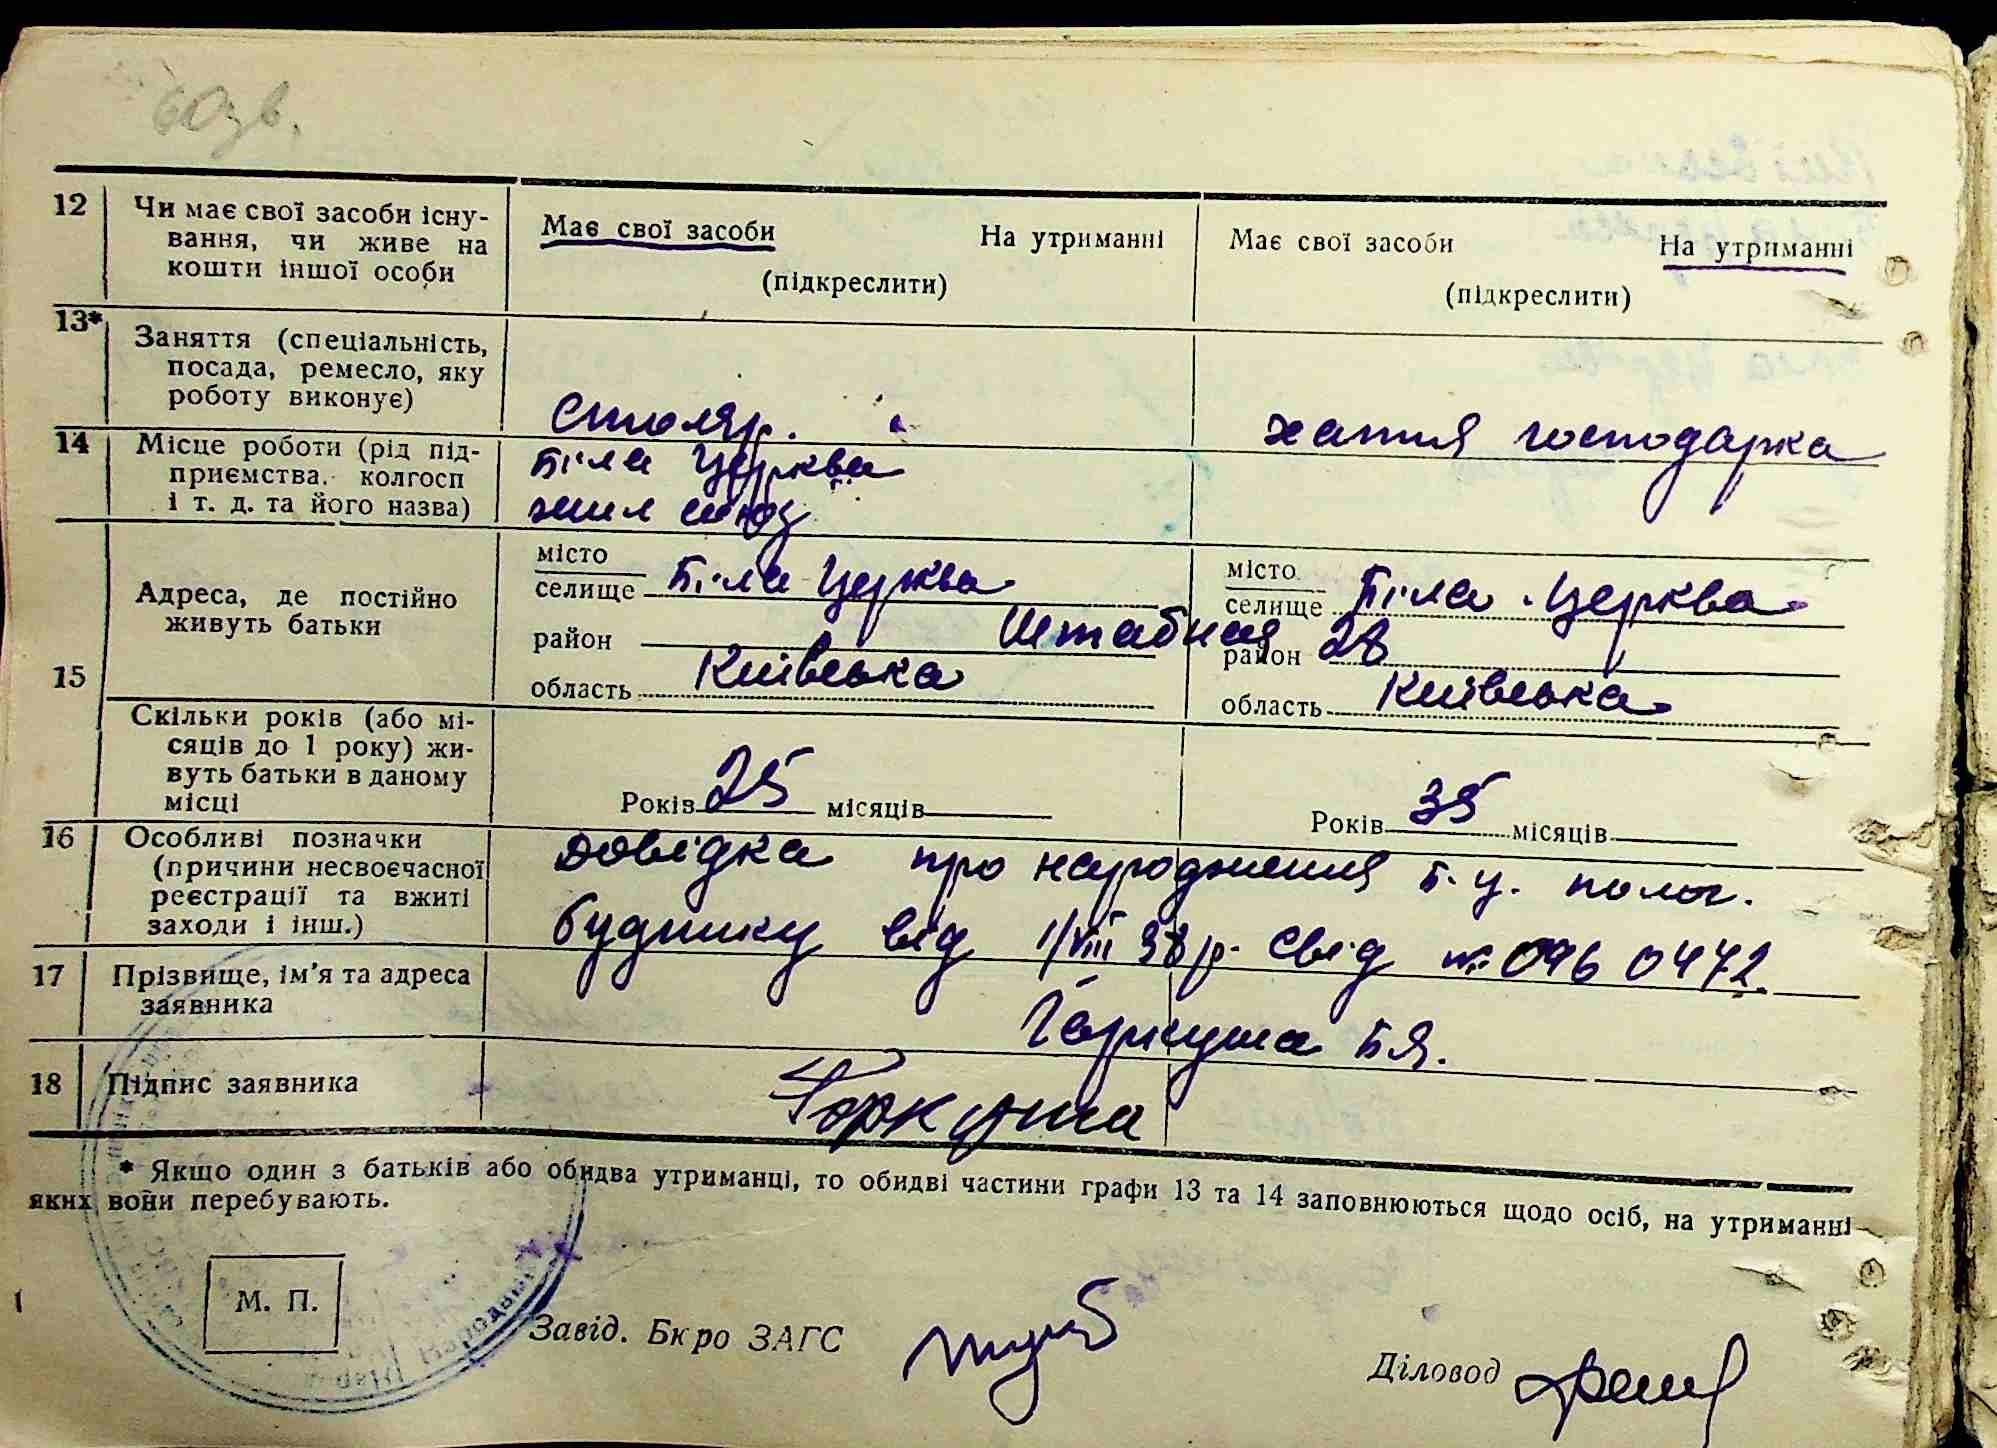 60зв.
12 Чи має свої засоби існу-
вання, чи живе на
кошти іншої особи
Має свої засоби На утриманні
(підкреслити)
Має свої засоби На утриманні
(підкреслити)
13* Заняття (спеціальність,
посада, ремесло, яку
роботу виконує)
столяр.
хатня господарка
14 Місце роботи (рід під-
приємства, колгосп
і т. д. та його назва)
Біла Церква
жил союз
15 Адреса, де постійно
живуть батьки
місто
селище Біла Церква
район Штабная 28
область Київська
місто
селище Біла Церква
район
область Київська
Скільки років (або мі-
сяців до 1 року) жи-
вуть батьки в даному
місці
Років 25 місяців
Років 35 місяців
16 Особливі позначки
(причини несвоєчасної
реєстрації та вжиті
заходи і інш.)
Довідка про народження Б.Ц. полог.
будинку від 1/VIII 38 р. свід № 096 0472.
17 Прізвище, ім'я та адреса
заявника
Гаркуша Б Я.
18 Підпис заявника
Гаркуша
* Якщо один з батьків або обидва утриманці, то обидві частини графи 13 та 14 заповнюються щодо осіб, на утриманні
яких вони перебувають.
М. П.
Завід. Бюро ЗАГС
Діловод